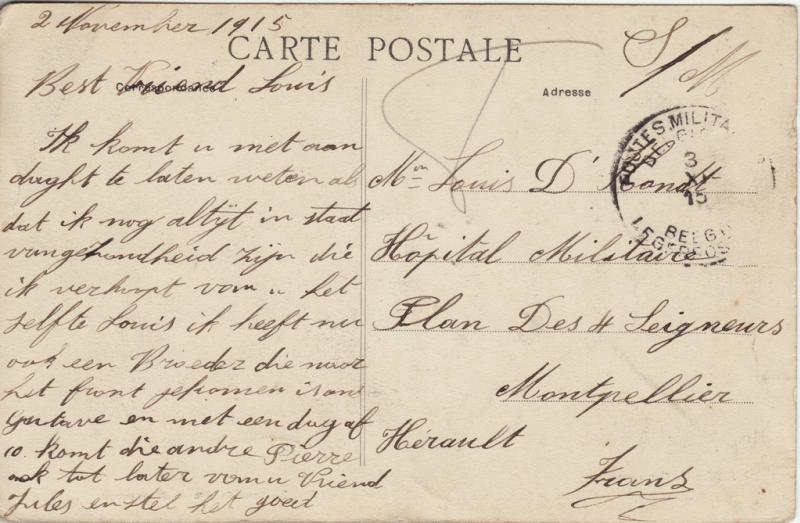 2 November 1915
CARTE POSTALE
S/M
Best Vriend Louis
Correspondance
Adresse
Ik komt u met aan
daght te laten weten als
dat ik nog altijt in staat
van gezondheid zijn die
ik verhopt vam u het
zelfte Louis ik heeft nu
ook een Broeder die naar
het front gekomen is
Gustave en met een dag af
10. komt die andre Pierre
ook tot later vam u Vriend
Jules en stel het goed
Mon Louis D'hondt
Hôpital Militaire
Plan Des 4 Seigneurs
Montpellier
Hérault
Frans
POSTES MILITA
BELGI
3
XI
15
BELG
LEGERPOS